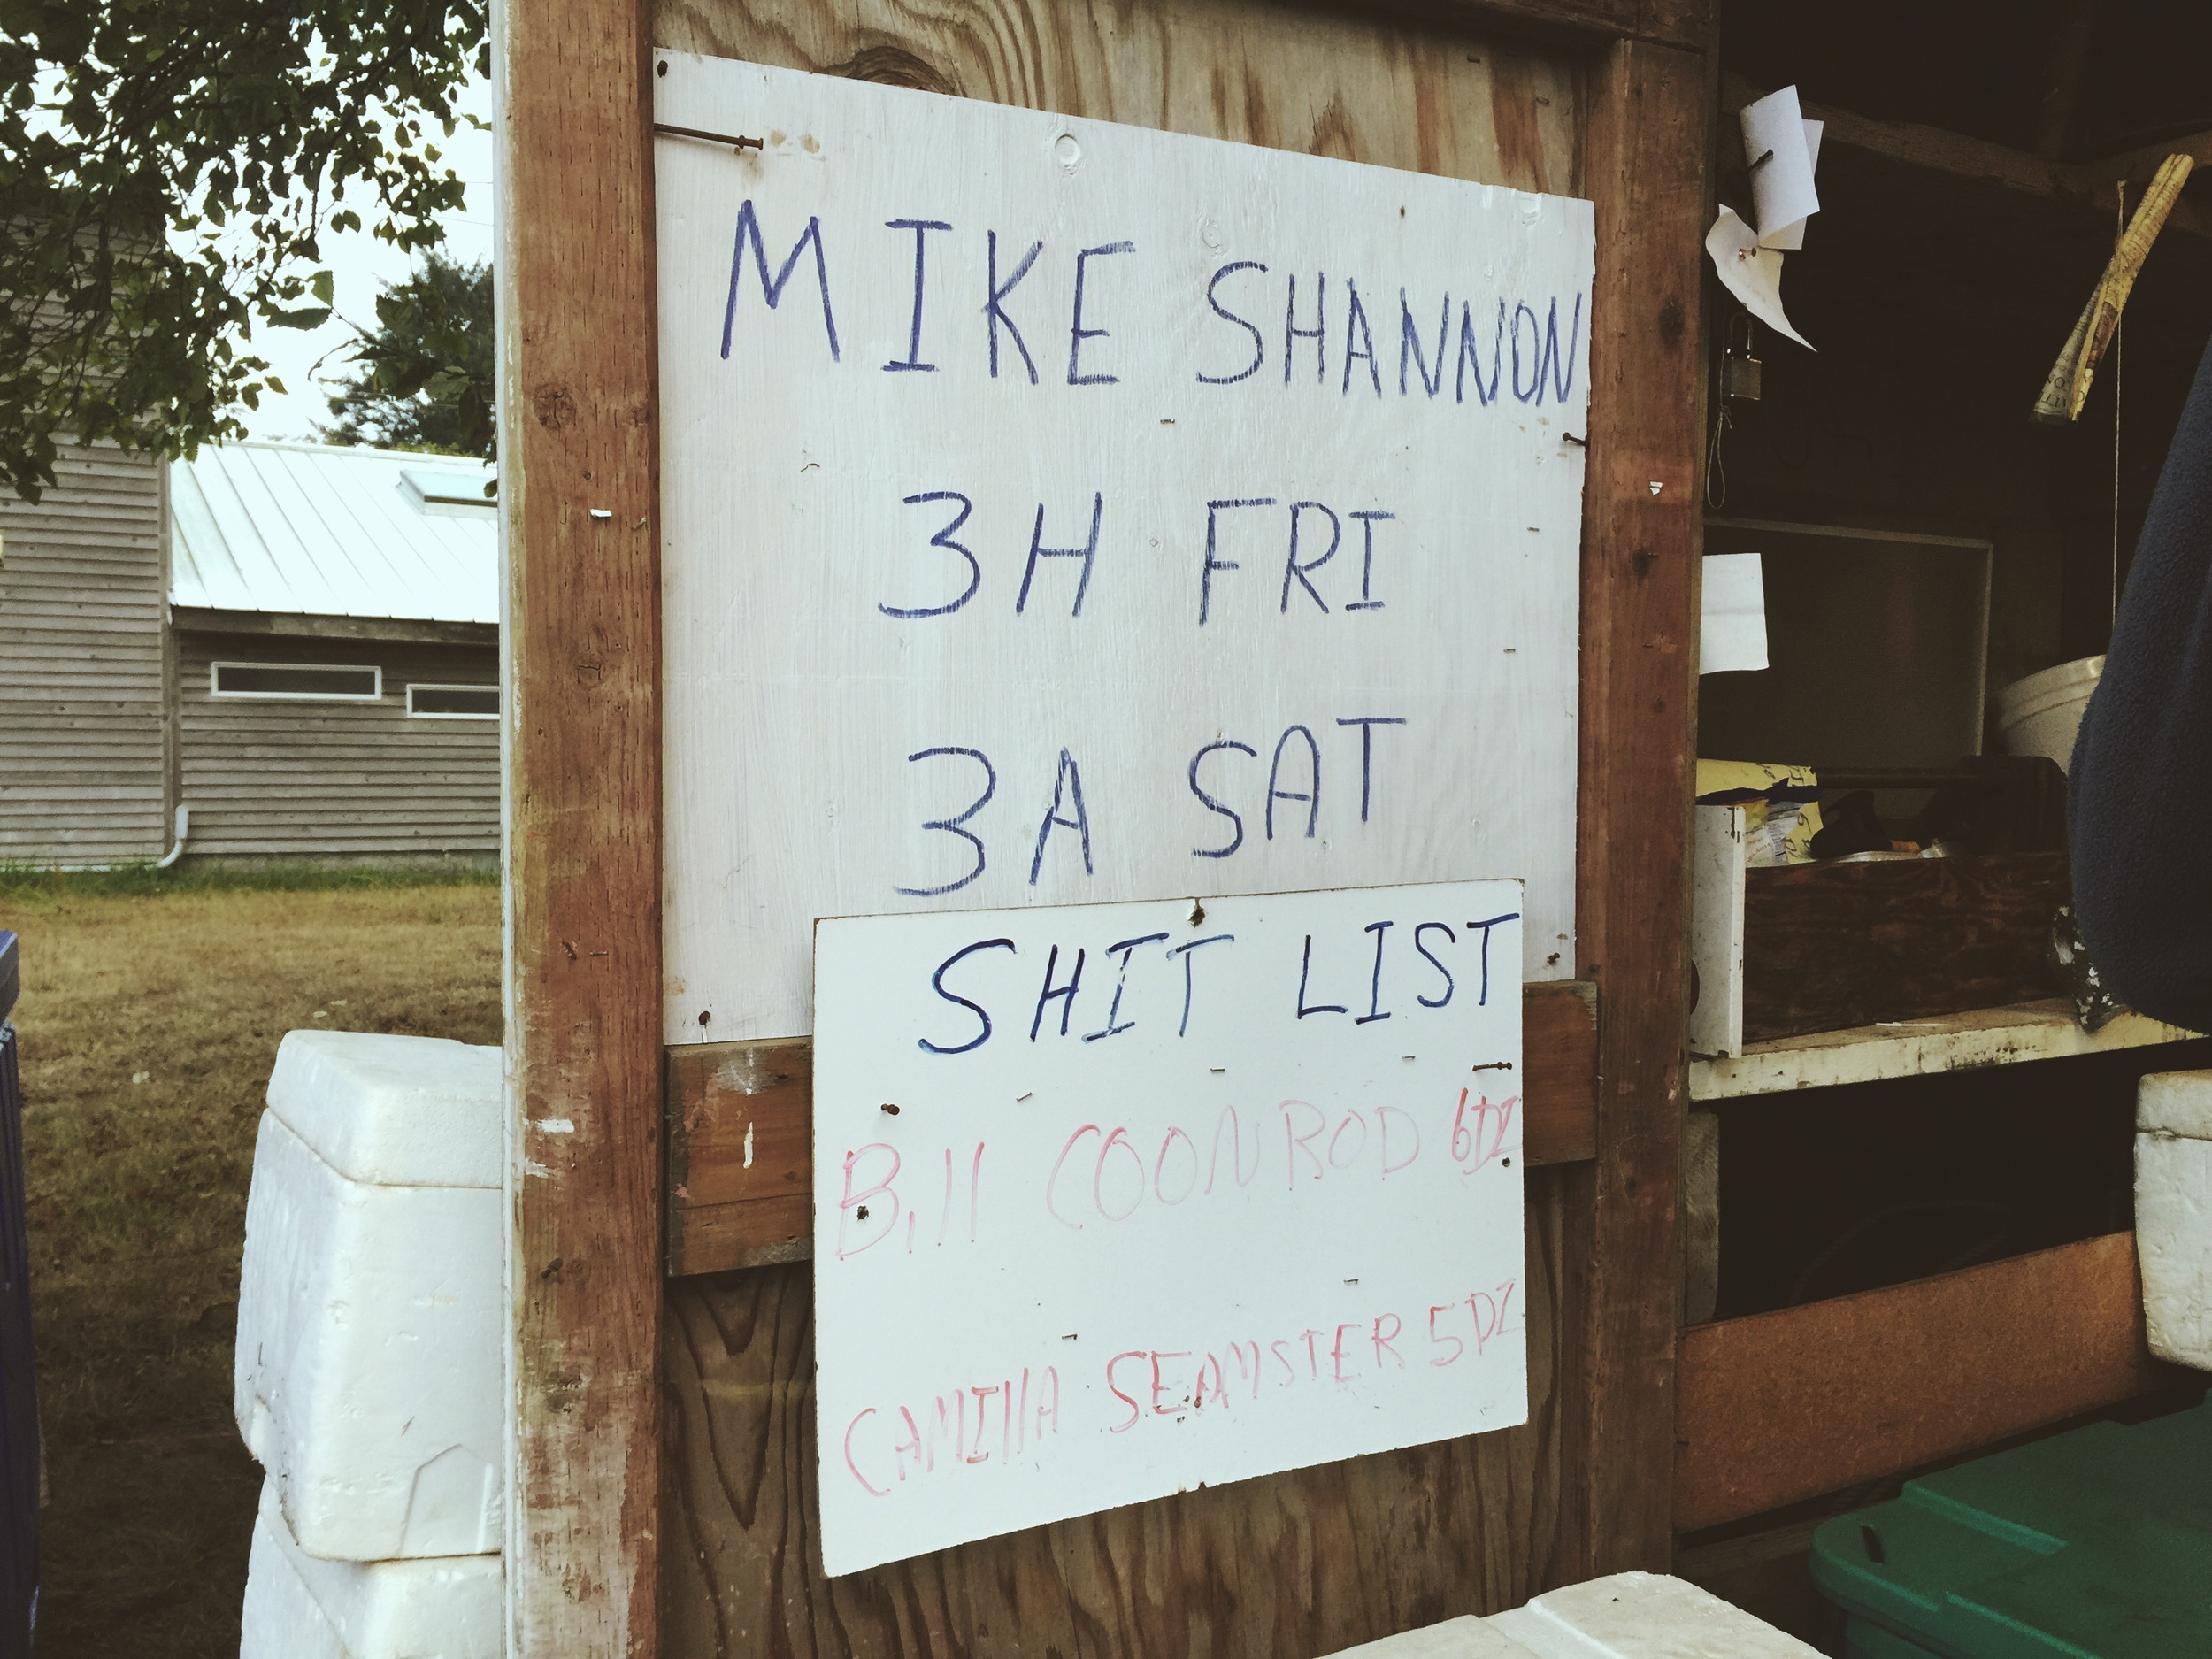 MIKE SHANNON
3H FRI
3A SAT
SHIT LIST
Bill COONROD 6DZ
CAMIllA SEAMSTER 5DZ